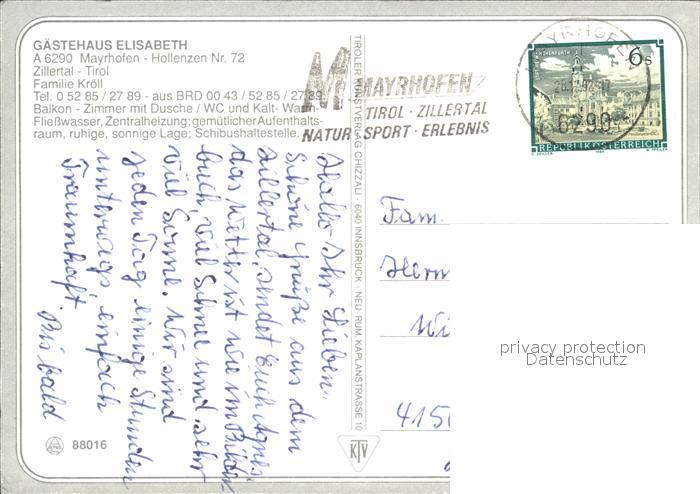 GÄSTEHAUS ELISABETH
A 6290 Mayrhofen - Hollenzen Nr. 72
Zillertal - Tirol
Familie Kröll
Tel. 0 52 85 / 27 89 - aus BRD 00 43 / 52 85 / 27 89
Balkon - Zimmer mit Dusche / WC und Kalt- Warm-
Fließwasser, Zentralheizung; gemütlicher Aufenthalts-
raum, ruhige, sonnige Lage; Schibushaltestelle.
MAYRHOFEN
TIROL · ZILLERTAL
NATUR · SPORT · ERLEBNIS
MAYRHOFEN
6290
6s
REPUBLIK ÖSTERREICH
TIROLER KUNSTVERLAG CHIZZALI · 6040 INNSBRUCK · NEU-RUM, KAPLANSTRASSE 10
Hallo Ihr Lieben.
Schöne Grüße aus dem
Zillertal, sendet Euch Agnes.
das Wetter ist wie im Bilder-
buch, viel Schnee und sehr
viel Sonne. Wir sind
jeden Tag einige Stunden
unterwegs einfach
Traumhaft.
Bis bald
Fam.
Herm
Wi
415
privacy protection
Datenschutz
88016
KTV